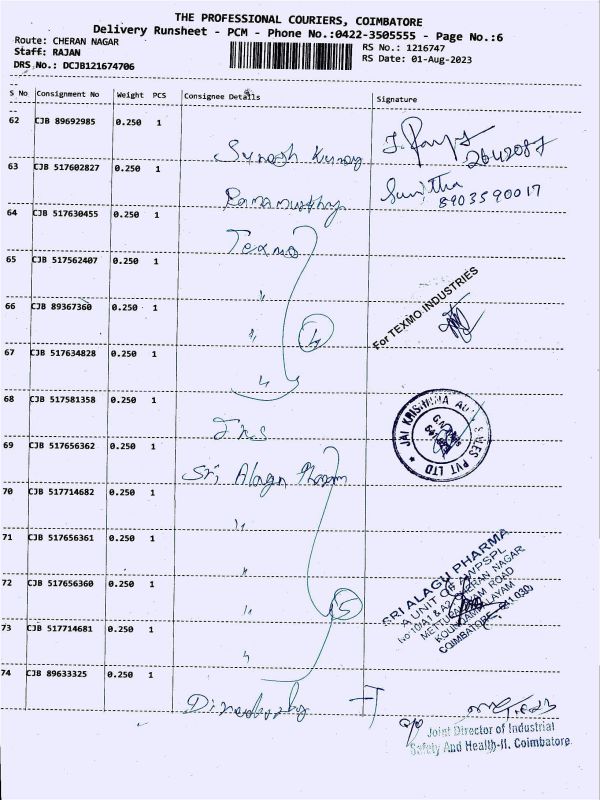 THE PROFESSIONAL COURIERS, COIMBATORE
Delivery Runsheet - PCM - Phone No.:0422-3505555 - Page No.:6
Route: CHERAN NAGAR
RS No.: 1216747
Staff: RAJAN
RS Date: 01-Aug-2023
DRS No.: DCJB121674706
S No Consignment No Weight PCS Consignee Details Signature
62 CJB 89692985 0.250 1
Suresh Kumar
2642087
63 CJB 517602827 0.250 1
Ramamurthy
Sunitha
8903590017
64 CJB 517630455 0.250 1
Texmo
65 CJB 517562407 0.250 1
"
For TEXMO INDUSTRIES
66 CJB 89367360 0.250 1
" 4
67 CJB 517634828 0.250 1
"
68 CJB 517581358 0.250 1
JAI KRISHNAA AUTO SALES PVT LTD
69 CJB 517656362 0.250 1
Sri Alagu
70 CJB 517714682 0.250 1
"
71 CJB 517656361 0.250 1
"
SRI ALAGU PHARMA
A UNIT OF AWPSPL
CHERAN NAGAR
METTUPALAYAM ROAD
KOUNDAMPALAYAM
COIMBATORE - 641 030
72 CJB 517656360 0.250 1
" 5
73 CJB 517714681 0.250 1
"
74 CJB 89633325 0.250 1
Joint Director of Industrial
Safety And Health-II. Coimbatore